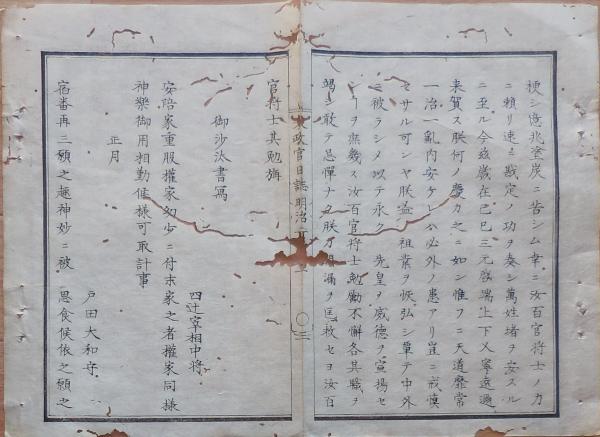 梗シ億兆塗炭ニ苦シム幸ニ汝百官将士ノ力
ニ頼リ速ニ戡定ノ功ヲ奏シ萬姓堵ヲ安スル
ニ至ル今茲歳在己巳三元啓端上下乂寧遠邇
来賀ス朕何ノ慶カ之ニ如ン惟フニ天道靡常
一治一亂内安ケレハ必外ノ患アリ豈ニ戒慎
セサル可ンヤ朕益祖業ヲ恢弘シ覃テ中外
ニ被ラシメ以テ永ク 先皇ヲ威德ヲ宣揚セ
ンヿヲ庶幾ス汝百官将士勉勵不懈各其職ヲ
竭シ敢テ忌憚ナク朕カ漏ヲ匡救セヨ汝百
政官日誌明治 〇三
官将士其勉旃
御沙汰書寫
四辻宰相中将
安陪家重服權家幼少ニ付末家之者權家同様
神樂御用相勤候様可取計事
正月
戸田大和守
宿番再三願之趣神妙ニ被 思食候依之願之